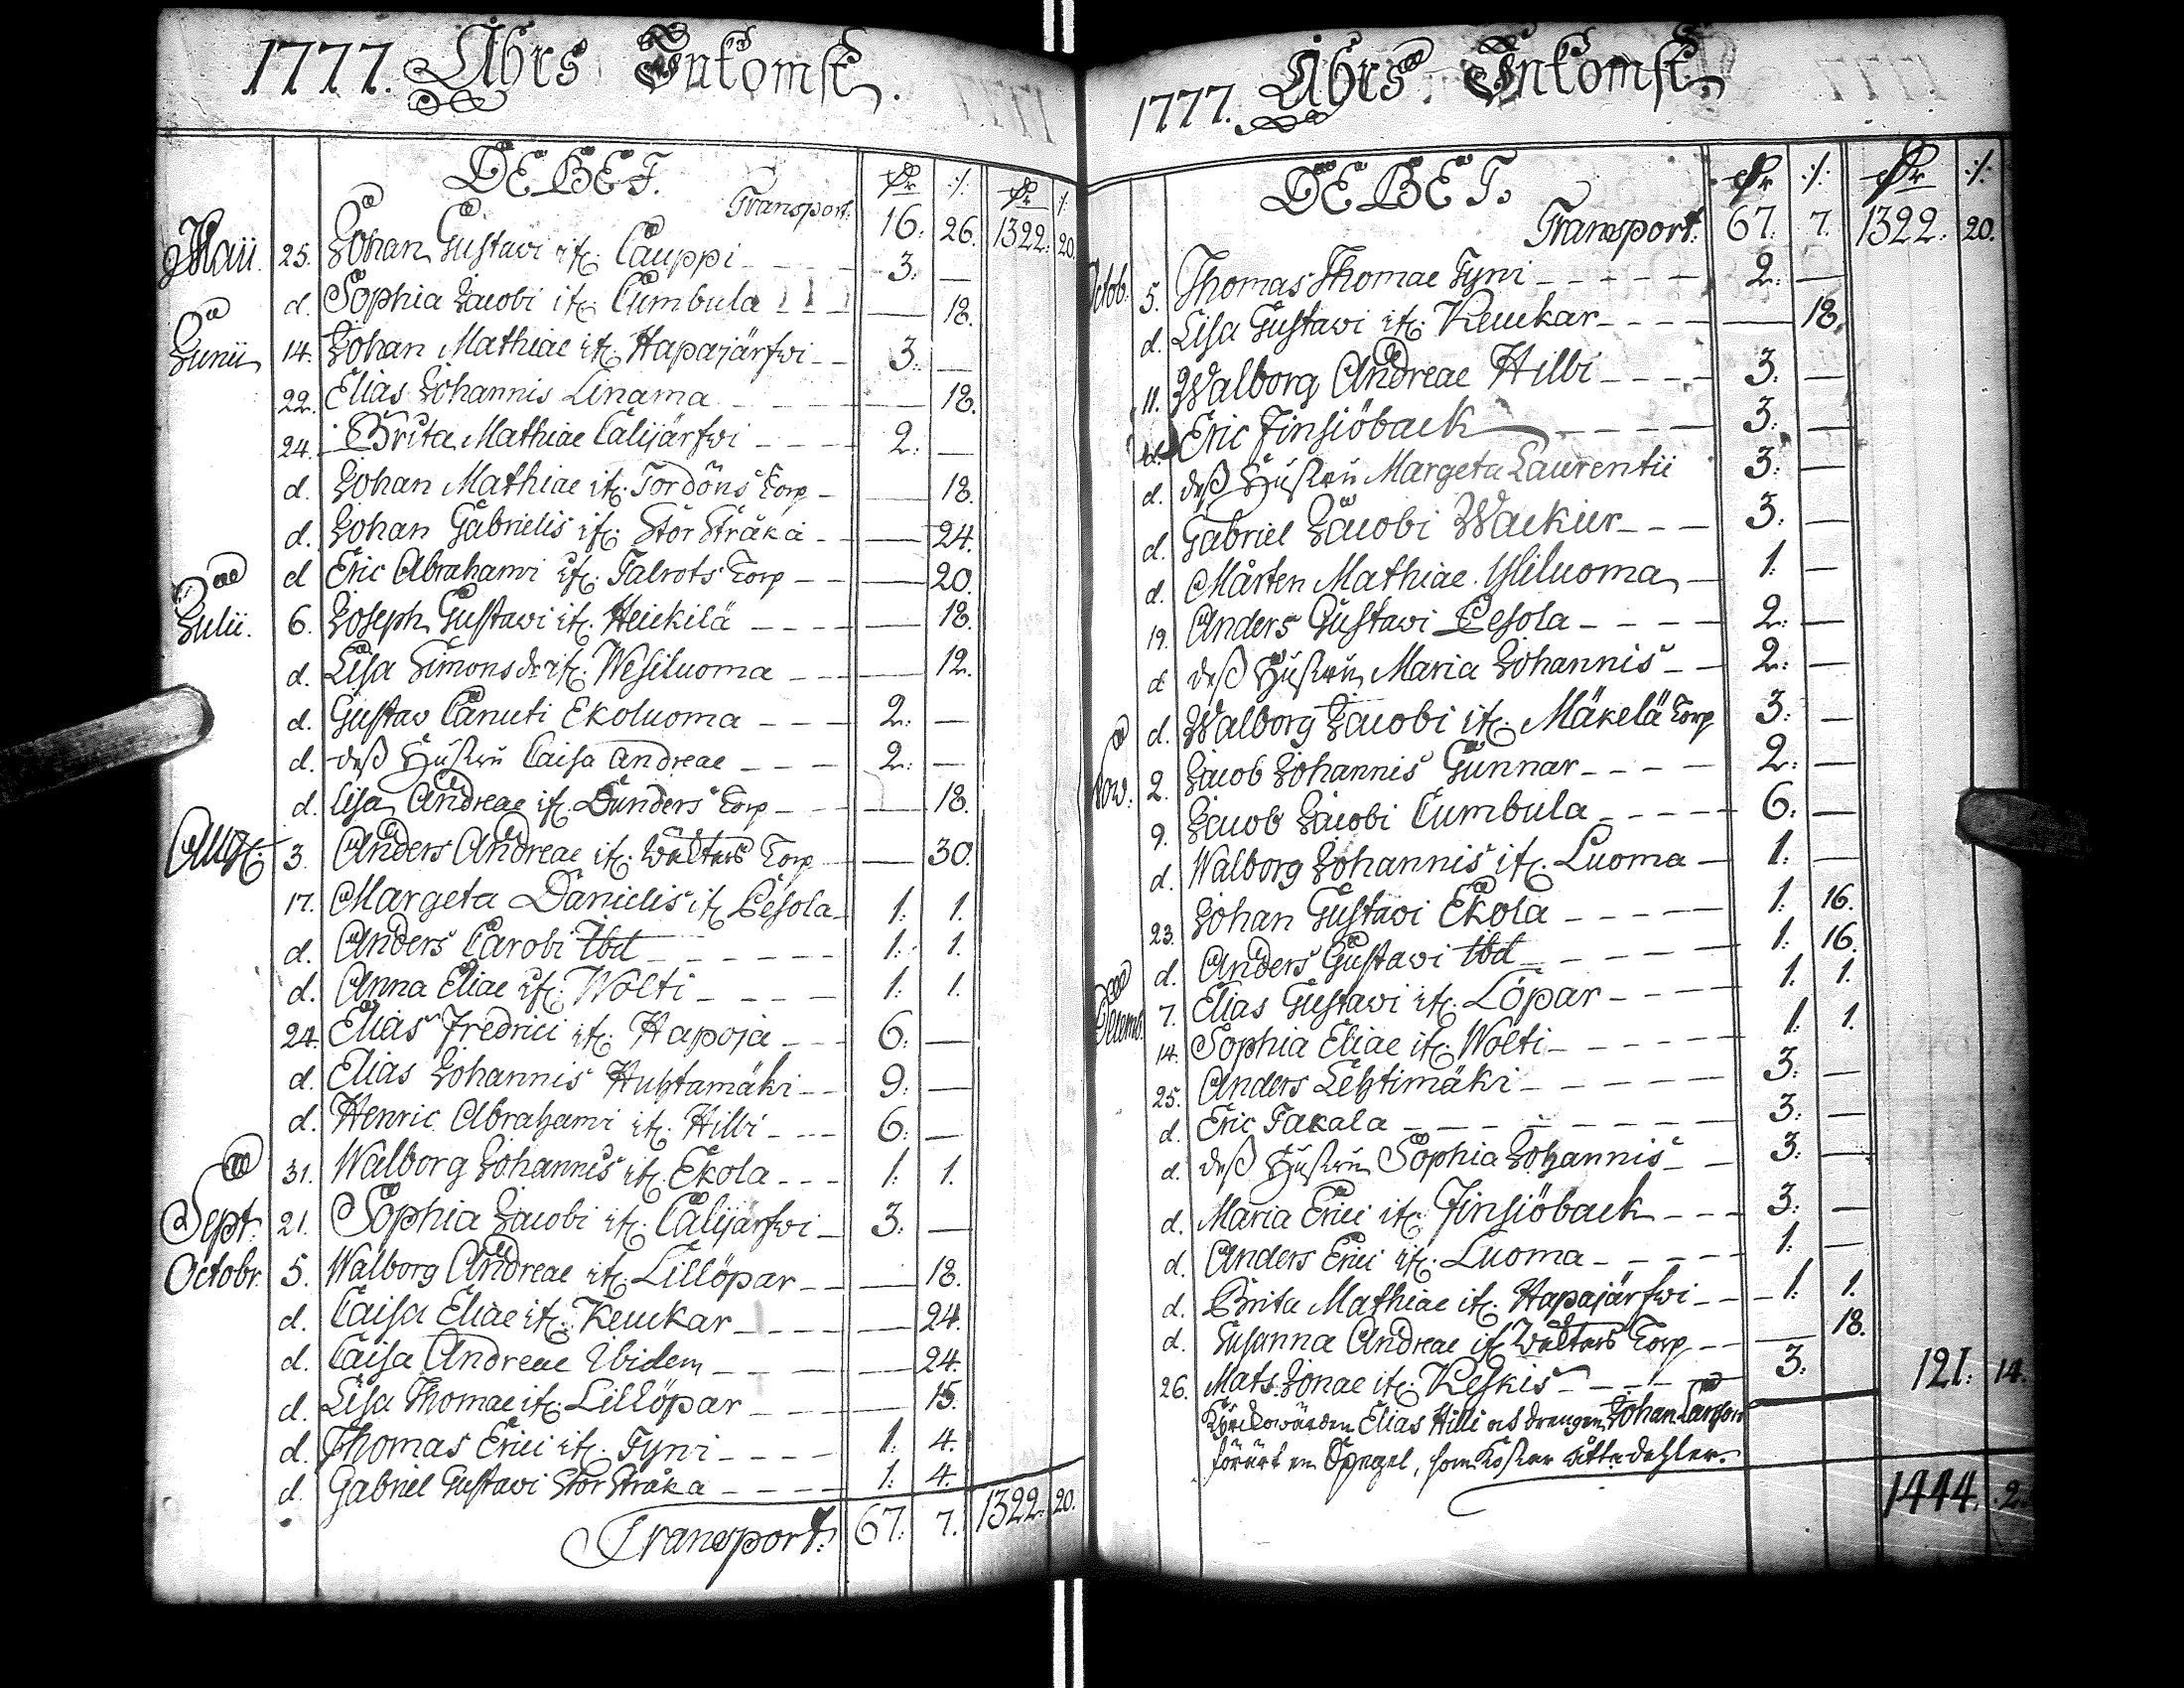 1777. Åhrs Inkomst.
DEBET.
Transport. 16. 26. 1322. 20.
Maii. 25. Johan Gustavi it. Cauppi - - - 3. —
d. Sophia Jacobi it. Cumbula - - - — 18.
Junii 14. Johan Mathiae it. Hapajärfwi - - 3. —
22. Elias Johannis Linama - - - — 18.
24. Brita Mathiae Calijärfwi - - - 2. —
d. Johan Mathiae it. Tordöns Torp - — 18.
d. Johan Gabrielis it. Stor Stråka - - — 24.
d Eric Abrahami it. Talrots Torp - - — 20.
Julii. 6. Joseph Gustavi it. Heickilä - - - - — 18.
d. Lisa Simons dr it. Wesiluoma - - - — 12.
d. Gustav Canuti Ekoluoma - - - 2. —
d. dess Hustru Caisa Andreae - - - 2. —
d. Lisa Andreae it. Dunders Torp - - — 18.
Aug. 3. Anders Andreae it. Walters Torp — 30.
17. Margeta Danielis it. Pesola - 1. 1.
d. Anders Carobi Ibd - - - - - - 1. 1.
d. Anna Eliae it. Wolti - - - - 1. 1.
24. Elias Fredrici it. Hapoja - - - 6. —
d. Elias Johannis Huhtamäki - - 9. —
d. Henric Abrahami it. Hilli - - - 6. —
31. Walborg Johannis it. Ekola - - - 1. 1.
Sept. 21. Sophia Jacobi it. Calijärfwi - 3. —
Octobr. 5. Walborg Andreae it. Lillöpar - - — 18.
d. Caisa Eliae it. Keuckar - - - - — 24.
d. Caisa Andreae Ibidem - - - - — 24.
d. Lisa Thomae it. Lillöpar - - - — 15.
d. Thomas Erici it. Tyni - - - - 1. 4.
d. Gabriel Gustavi Stor Stråka - - - - 1. 4.
Transport. 67. 7. 1322. 20.
1777. Åhrs Inkomst.
DEBET.
Transport. 67. 7. 1322. 20.
Octob. 5. Thomas Thomae Tyni - - - - - 2. —
d. Lisa Gustavi it. Keuckar - - - - — 18.
11. Walborg Andreae Hilli - - - - 3. —
d. Eric Finsiöback - - - - 3. —
d. dess Hustru Margeta Laurentii 3. —
d. Gabriel Jacobi Wackiur - - - 3. —
d. Mårten Mathiae Yliluoma - 1. —
19. Anders Gustavi Pesola - - - - 2. —
d dess Hustru Maria Johannis - - 2. —
d. Walborg Jacobi it. Mäkelä Torp 3. —
Nov. 2. Jacob Johannis Gunnar - - - - 2. —
9. Jacob Jacobi Cumbula - - - - - 6. —
d. Walborg Johannis it. Luoma - 1. —
23. Johan Gustavi Ekola - - - - 1. 16.
d. Anders Gustavi Ibd - - - - 1. 16.
Decemb. 7. Elias Gustavi it. Löpar - - - - 1. 1.
14. Sophia Eliae it. Wolti - - - - - 1. 1.
25. Anders Lehtimäki - - - - - 3. —
d. Eric Takala - - - - - - - - 3. —
d. dess Hustru Sophia Johannis - - 3. —
d. Maria Erici it. Finsiöback - - - 3. —
d. Anders Erici it. Luoma - - - - 1. —
d. Brita Mathiae it. Hapajärfwi - - - 1. 1.
d. Susanna Andreae it. Walters Torp - - — 18.
26. Mats Jonae it. Keskis - - - - - 3. 121. 14.
Kÿrckowärden Elias Hilli och drengen Johan Larsson
förärt en Spegel, som kostar otta dahler.
1444. 2.